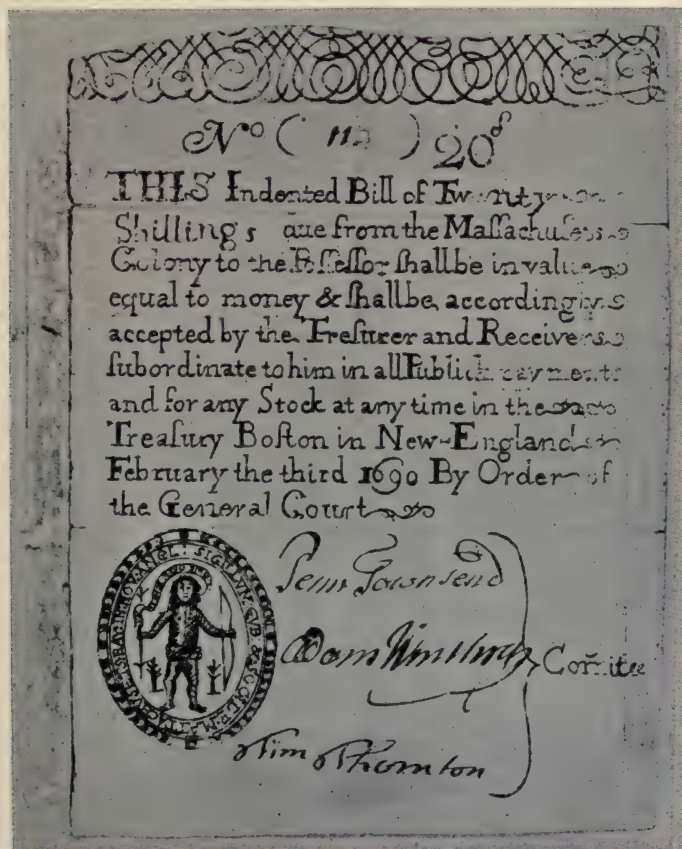 No ( 11 ) 20s
THIS Indented Bill of Twenty
Shillings due from the Maſſachuſets
Colony to the Poſſeſſor ſhallbe in value
equal to money & ſhallbe accordingly
accepted by the Treſurer and Receivers
ſubordinate to him in all Publick payments
and for any Stock at any time in the
Treaſury Boſton in New-England
February the third 1690 By Order of
the General Court
SIGILLUM GUB & SOC DE MATTACHUSETS BAY IN NOV ANGL
Penn Townsend
Adam Winthrop
Comitee
Tim Thornton